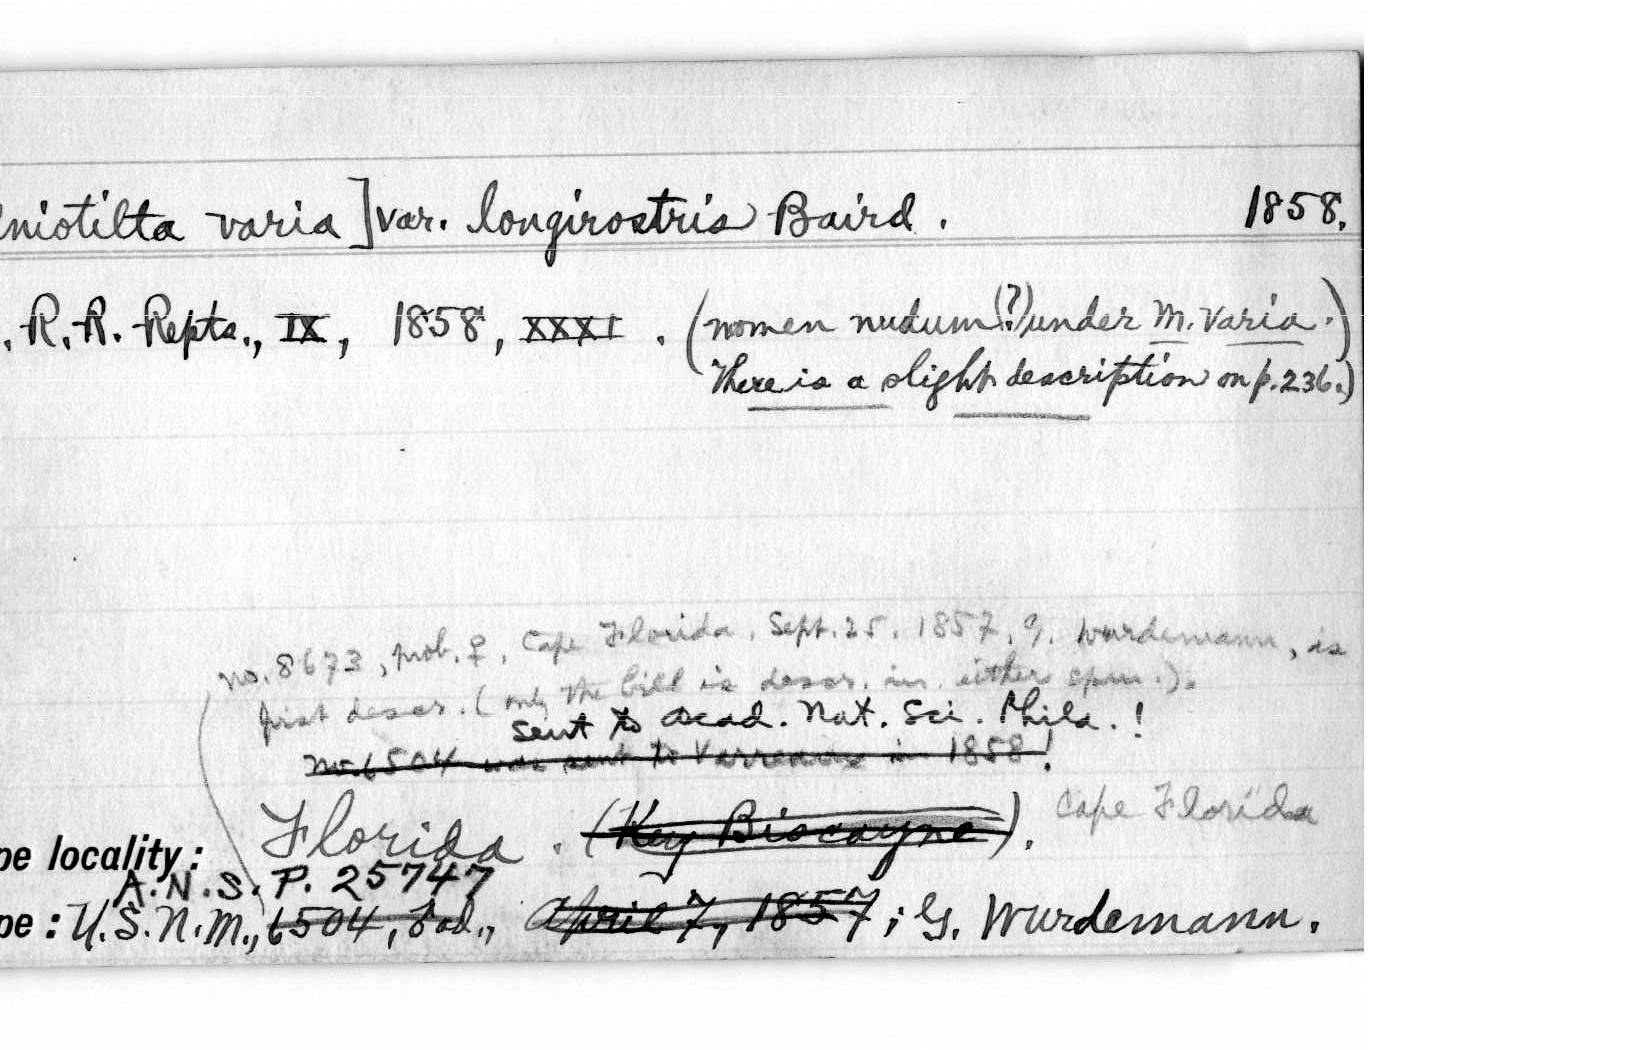 niotilta varia] var. longirostris Baird. 1858.
. R.R. Repts., IX, 1858, XXXI. (nomen nudum(?) under M. varia.)
There is a slight description on p. 236.)
no. 8673, prob. ♀, Cape Florida, Sept. 25, 1857, G. Wurdemann, is
first descr. (only the bill is descr. in either spm.).
Sent to Acad. Nat. Sci. Phila.!
no. 6504 was sent to Verreaux in 1858!
pe locality: Florida. (Key Biscayne). Cape Florida
A.N.S.P. 25747
pe: U.S.N.M., 6504, ad., April 7, 1857; G. Wurdemann.